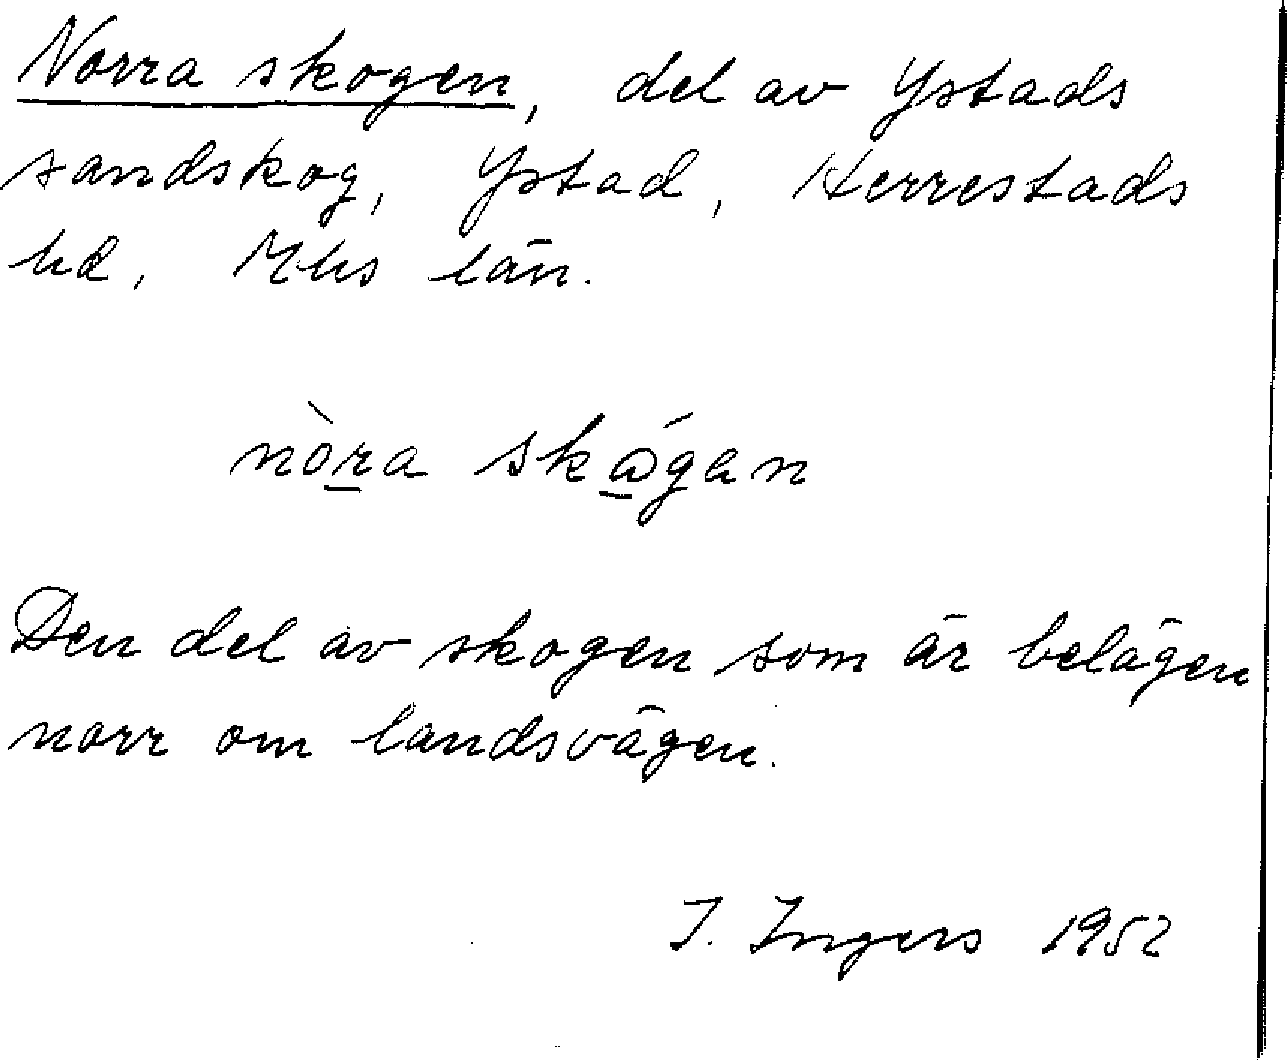 Norra skogen, del av Ystads
sandskog, Ystad, Herrestads
hd, Mhs län.
nòra skågan
Den del av skogen som är belägen
norr om landsvägen.
I. Ingers 1952